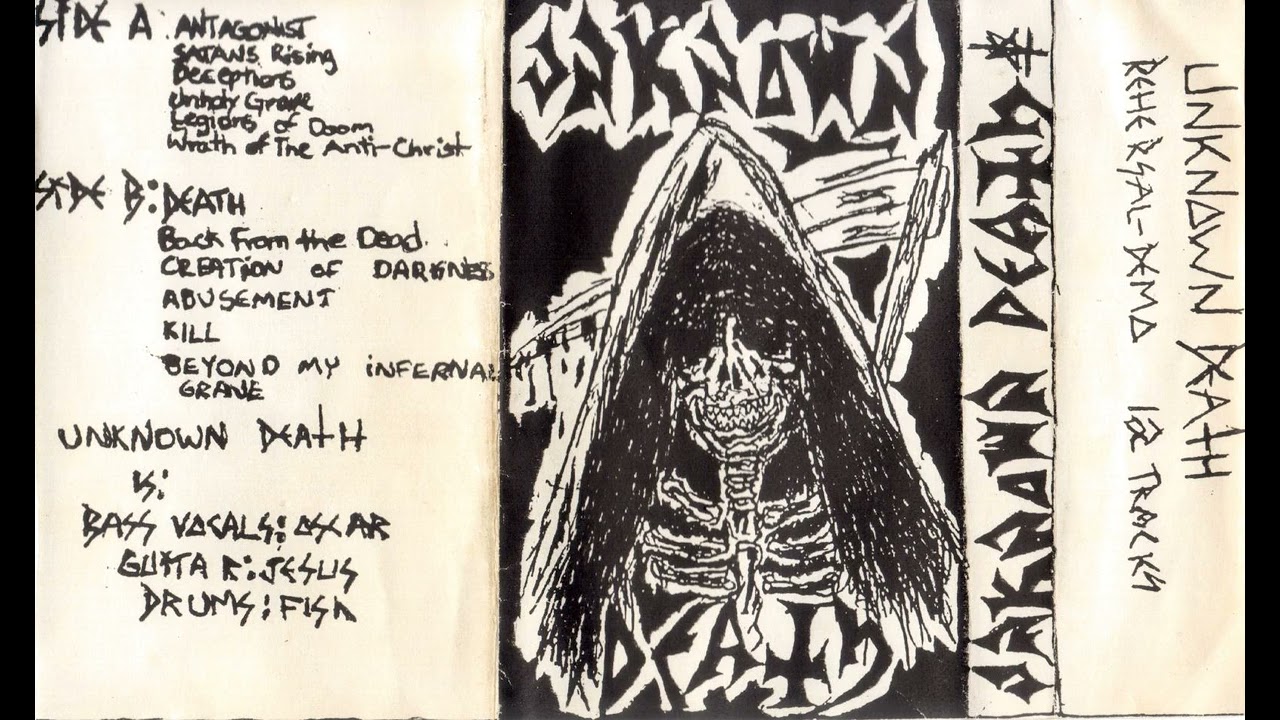 SIDE A: ANTAGONIST
SATANS Rising
Deceptions
Unholy Grave
Legions of Doom
Wrath of The Anti-Christ
SIDE B: DEATH
Back From the Dead.
CREATION OF DARKNESS
ABUSEMENT
KILL
BEYOND MY INFERNAL
GRAVE
UNKNOWN DEATH
is:
BASS VOCALS: OSCAR
GUITAR: JESUS
DRUMS: FISH
UNKNOWN
DEATH
UNKNOWN DEATH
UNKNOWN DEATH
REHERSAL-DEMO 12 TRACKS